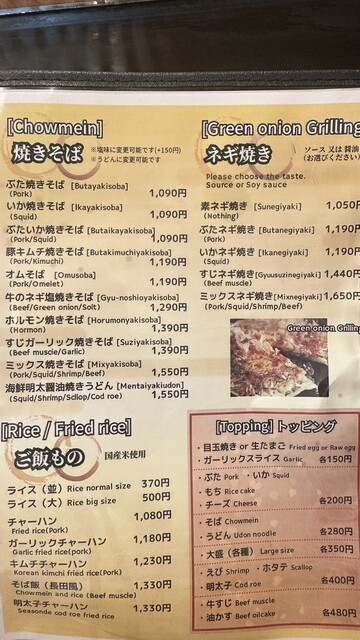 [Chowmein]
焼きそば
※塩味に変更可能です(+150円)
※うどんに変更可能です
ぶた焼きそば [Butayakisoba]
(Pork) 1,090円
いか焼きそば [Ikayakisoba]
(Squid) 1,090円
ぶたいか焼きそば [Butaikayakisoba]
(Pork/Squid) 1,090円
豚キムチ焼きそば [Butakimuchiyakisoba]
(Pork/Kimuchi) 1,190円
オムそば [Omusoba]
(Pork/Omelet) 1,190円
牛のネギ塩焼きそば [Gyu-noshioyakisoba]
(Beef/Green onion/Solt) 1,290円
ホルモン焼きそば [Horumonyakisoba]
(Hormon) 1,390円
すじガーリック焼きそば [Suziyakisoba]
(Beef muscle/Garlic) 1,390円
ミックス焼きそば [Mixyakisoba]
(Pork/Squid/Shrimp/Beef) 1,550円
海鮮明太醤油焼きうどん [Mentaiyakiudon]
(Squid/Shrimp/Scllop/Cod roe) 1,550円
[Rice / Fried rice]
ご飯もの 国産米使用
ライス（並）Rice normal size 370円
ライス（大）Rice big size 500円
チャーハン 1,080円
Fried rice(Pork)
ガーリックチャーハン 1,180円
Garlic fried rice(pork)
キムチチャーハン 1,230円
Korean kimchi fried rice(Pork)
そば飯（長田風） 1,330円
Chowmein and rice (Beef muscle)
明太子チャーハン 1,330円
Seasonde cod roe fried rice
[Green onion Grilling
ネギ焼き
ソース 又は 醤油
(お選びください)
Please choose the taste.
Source or Soy sauce
素ネギ焼き [Sunegiyaki] 1,050円
(Nothing)
ぶたネギ焼き [Butanegiyaki] 1,190円
(Pork)
いかネギ焼き [Ikanegiyaki] 1,190円
(Squid)
すじネギ焼き [Gyuusuzinegiyaki] 1,440円
(Beef muscle)
ミックスネギ焼き [Mixnegiyaki] 1,650円
(Pork/Squid/Shrimp/Beef)
Green onion Grilling
[Topping] トッピング
・目玉焼き or 生たまご Fried egg or Raw egg
・ガーリックスライス Garlic 各150円
・ぶた Pork ・いか Squid
・もち Rice cake
・チーズ Cheese 各200円
・そば Chowmein
・うどん Udon noodle 各280円
・大盛（各種） Large size 各350円
・えび Shrimp ・ホタテ Scallop
・明太子 Cod roe 各400円
・牛すじ Beef muscle
・油かす Beef oilcake 各480円